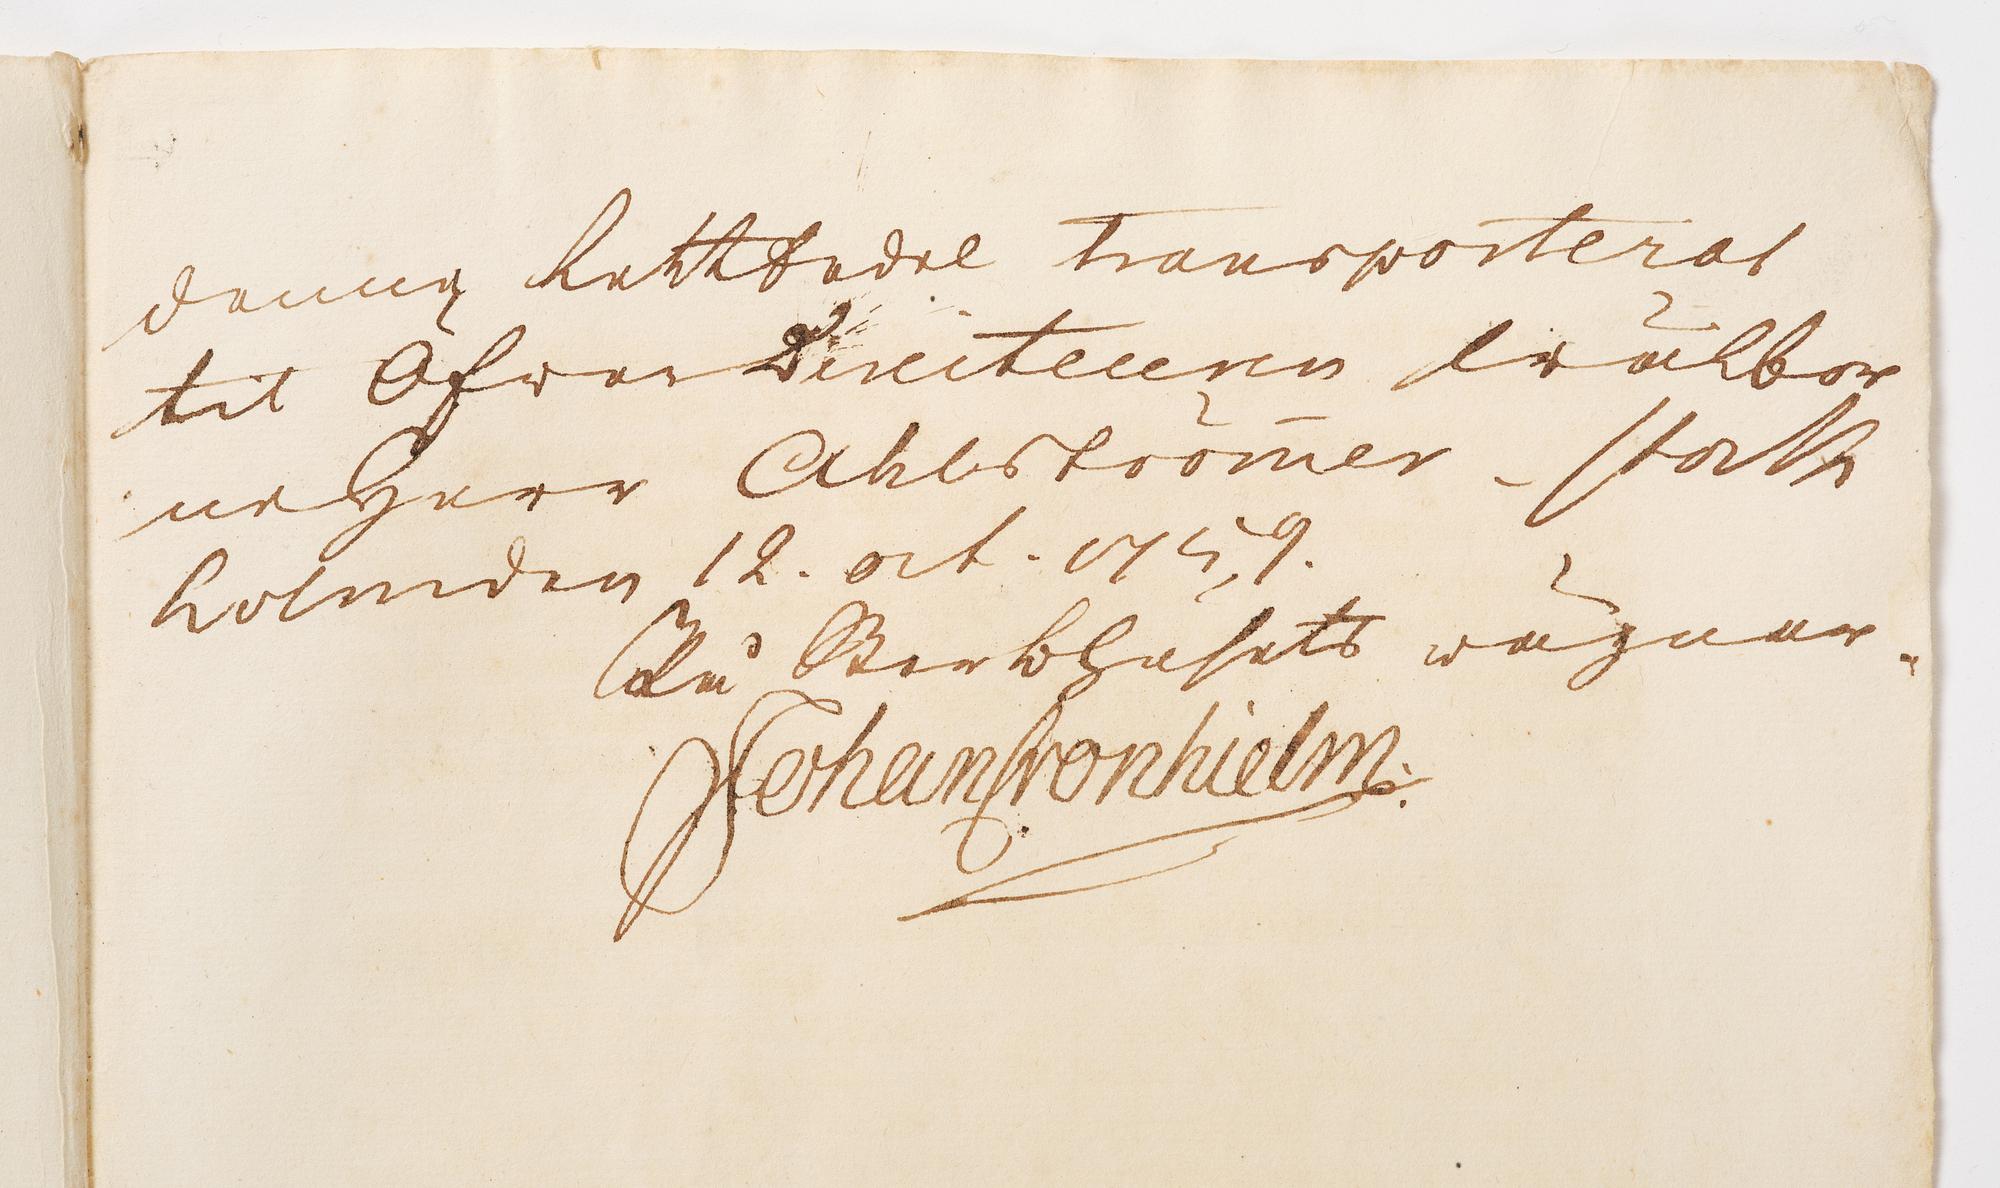 denna Lottsedel transporteras
til Öfwer Directeuren wälbor
ne Herr Ahlströmer. Stock
holm den 12. oct. 1759.
På Werksens wägnar.
Johan Cronhielm.